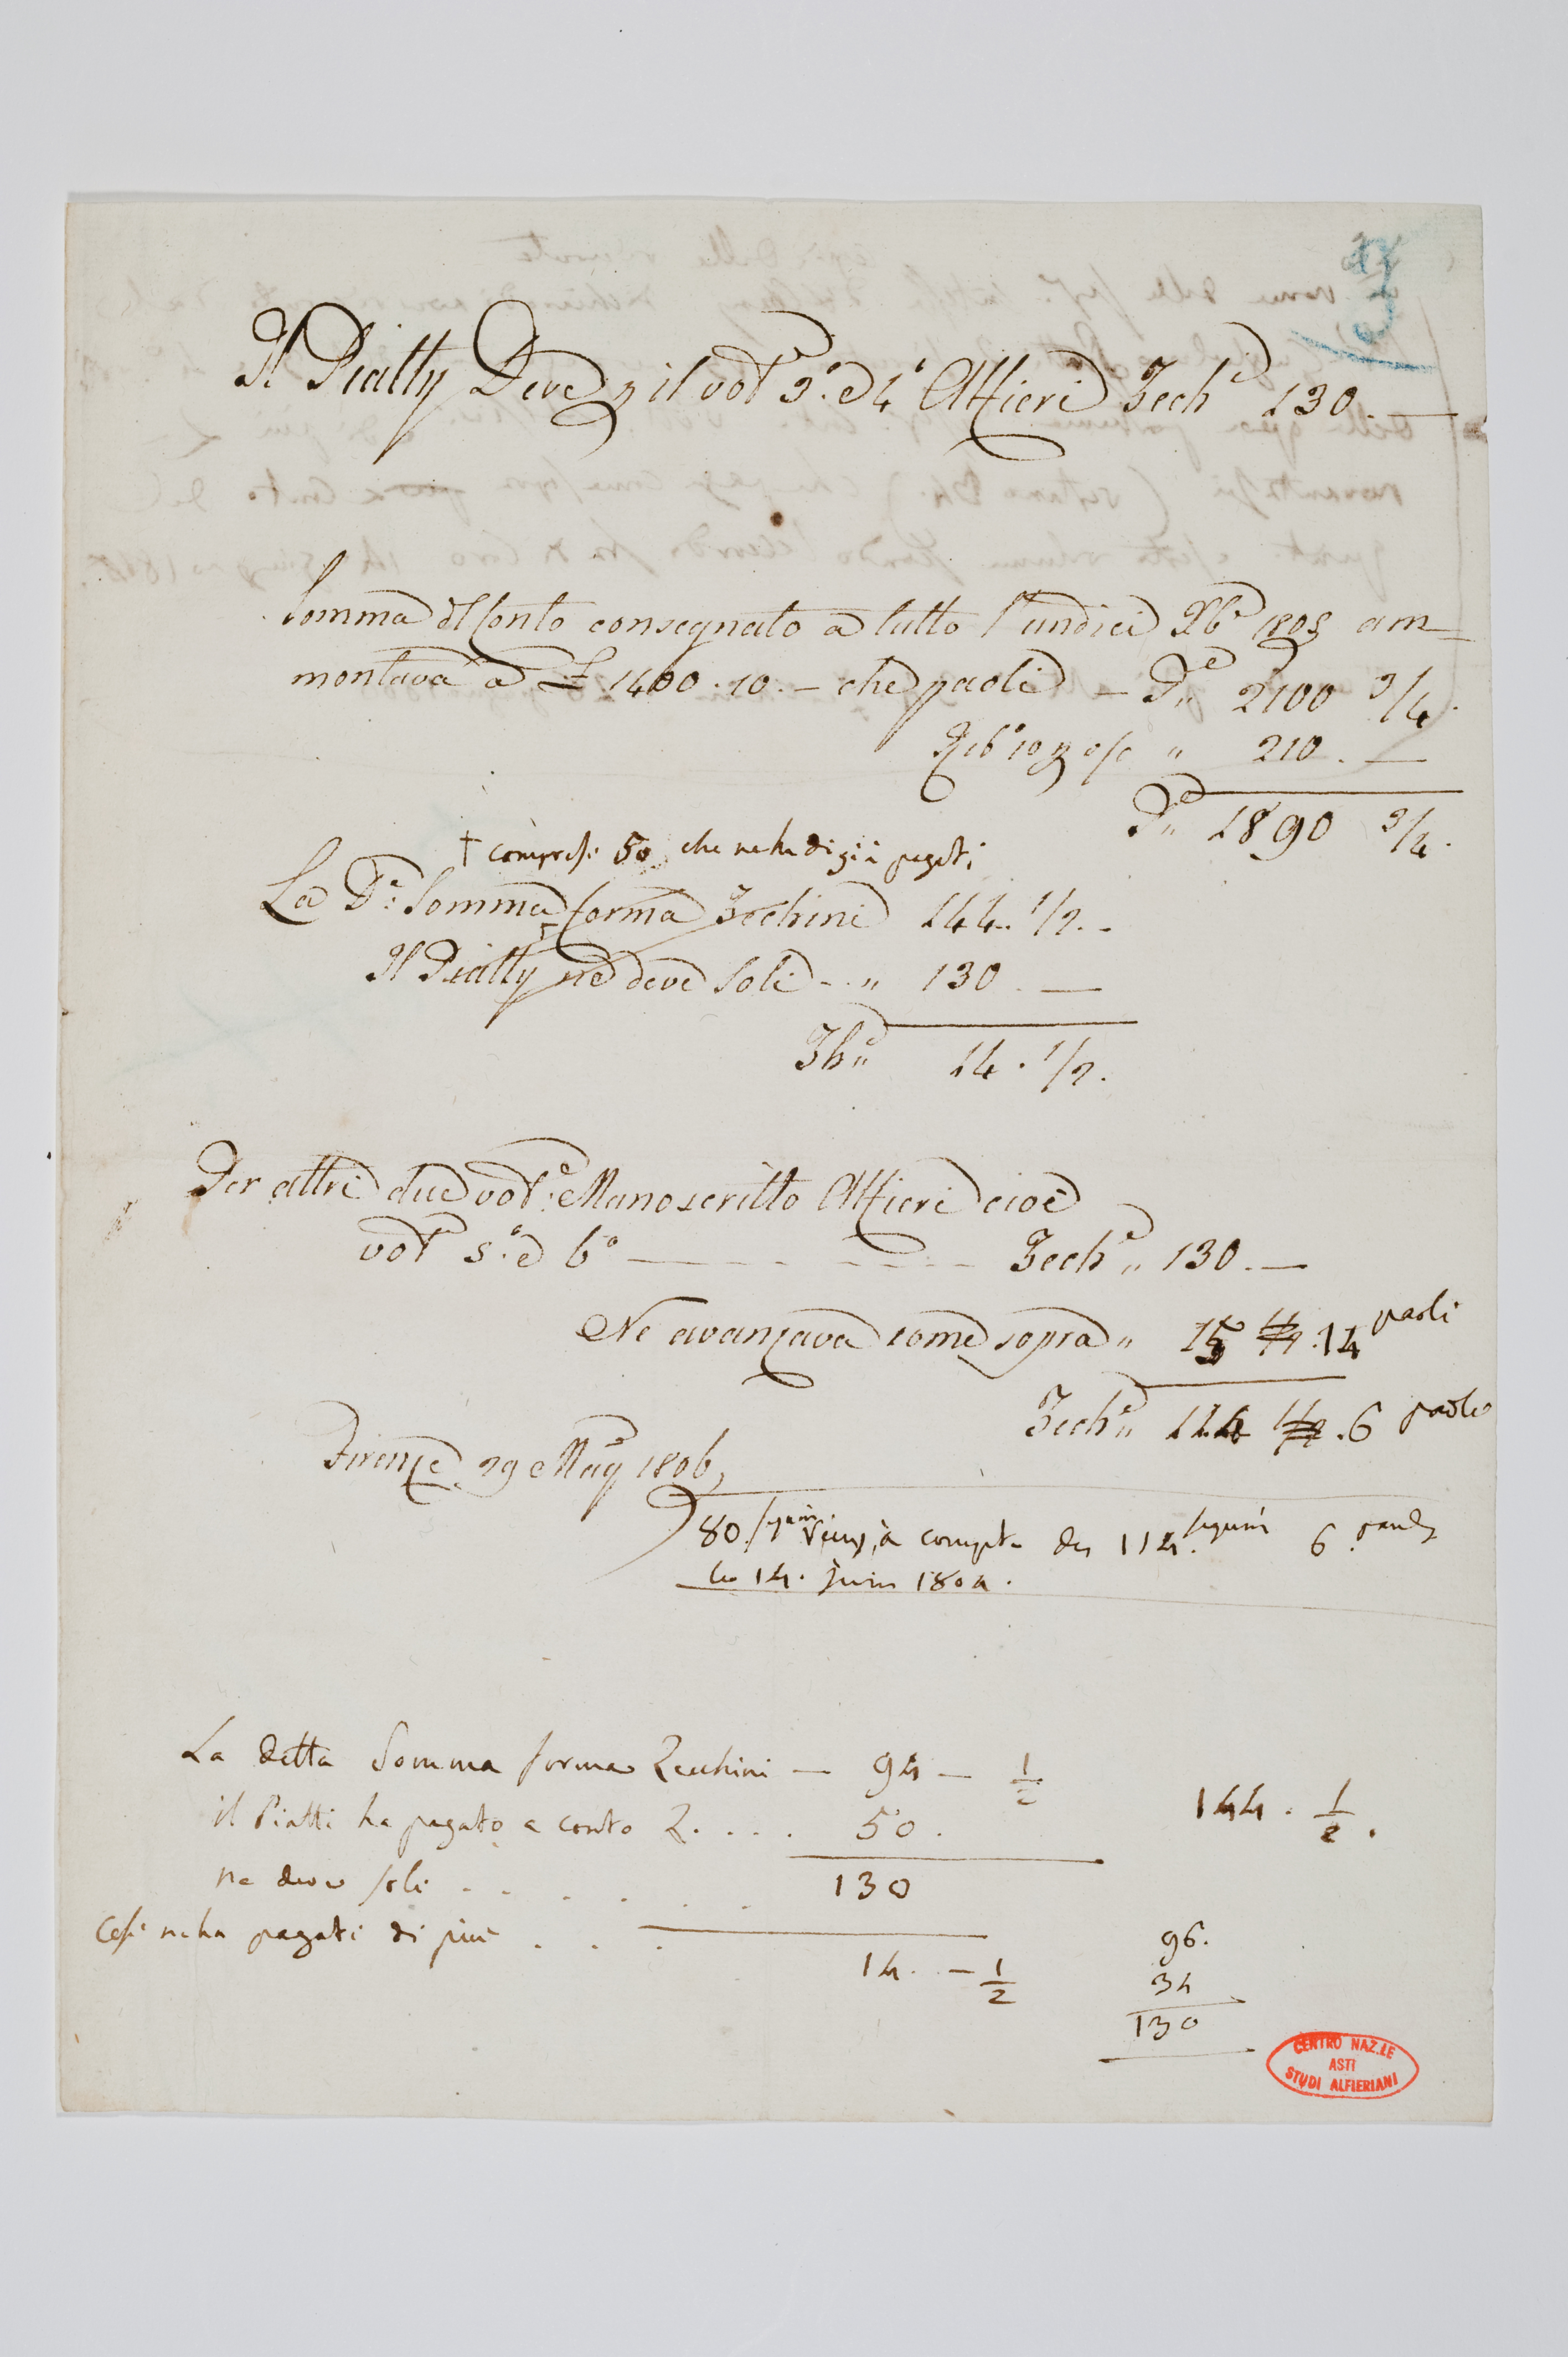 Il Piatty Deve p il vol.e 3.o e 4.o Alfieri Zech.i 130. —
Somma il Conto consegnato a tutto l'undici Xb.e 1805 am=
montava a £ 1400.10.— che paoli — P.i „ 2100 3/4.
Rib.o 10 p o/o „ 210. —
P.i „ 1890 3/4.
† compresi 50 che ne ha di già pagati
La D.a Somma forma Zechini 144. 1/2. -
Il Piatty ne deve Soli - - „ 130. —
Zh.i „ 14. 1/2.
Per altri due vol.i Manoscritto Alfieri cioè
vol.e 5.o e 6.o — - - - - - - Zech.i „ 130. —
Ne avanzava come sopra „ 15 . 14 paoli
Zech.i „ 114 . 6 paoli
Firenze 29 Mag.o 1806,
à compte des 114. sequins 6. pauls
le 14. Juin 180
La detta Somma forma Zecchini — 94 — 1/2
144. 1/2.
il Piatti ha pagato a conto Z. . . . 50.
ne deve soli . . . . . . 130
Così ne ha pagati di più . . . 14. — 1/2
96.
34
130
CENTRO NAZ.LE
ASTI
STUDI ALFIERIANI